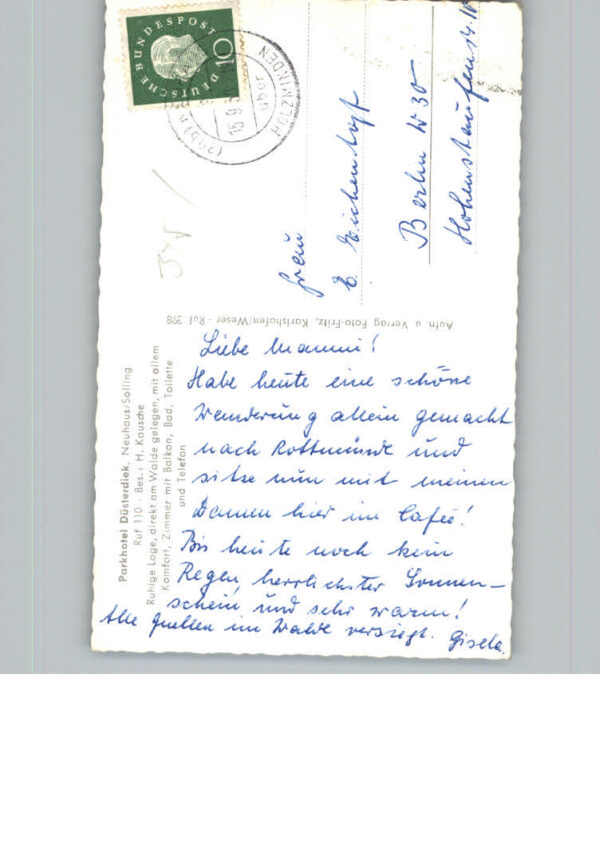 Parkhotel Düsterdiek, Neuhaus/Solling
Ruf 110 · Bes.: H. Kausche
Ruhige Lage, direkt am Walde gelegen, mit allem
Komfort, Zimmer mit Balkon, Bad, Toilette
und Telefon
Liebe Mammi!
Habe heute eine schöne
Wanderung allein gemacht
nach Rottmünde und
sitze nun mit meinen
Damen hier im Café!
Bis heute noch kein
Regen, herrlichster Sonnen-
schein und sehr warm!
Alle Quellen im Walde versiegt. Gisela.
Aufn u Verlag Foto-Fritz, Karlshafen/Weser - Ruf 398
DEUTSCHE BUNDESPOST
10
über
HOLZMINDEN
Frau
E. Eichentopf
Berlin W 30
Hohenstaufenstr. 10